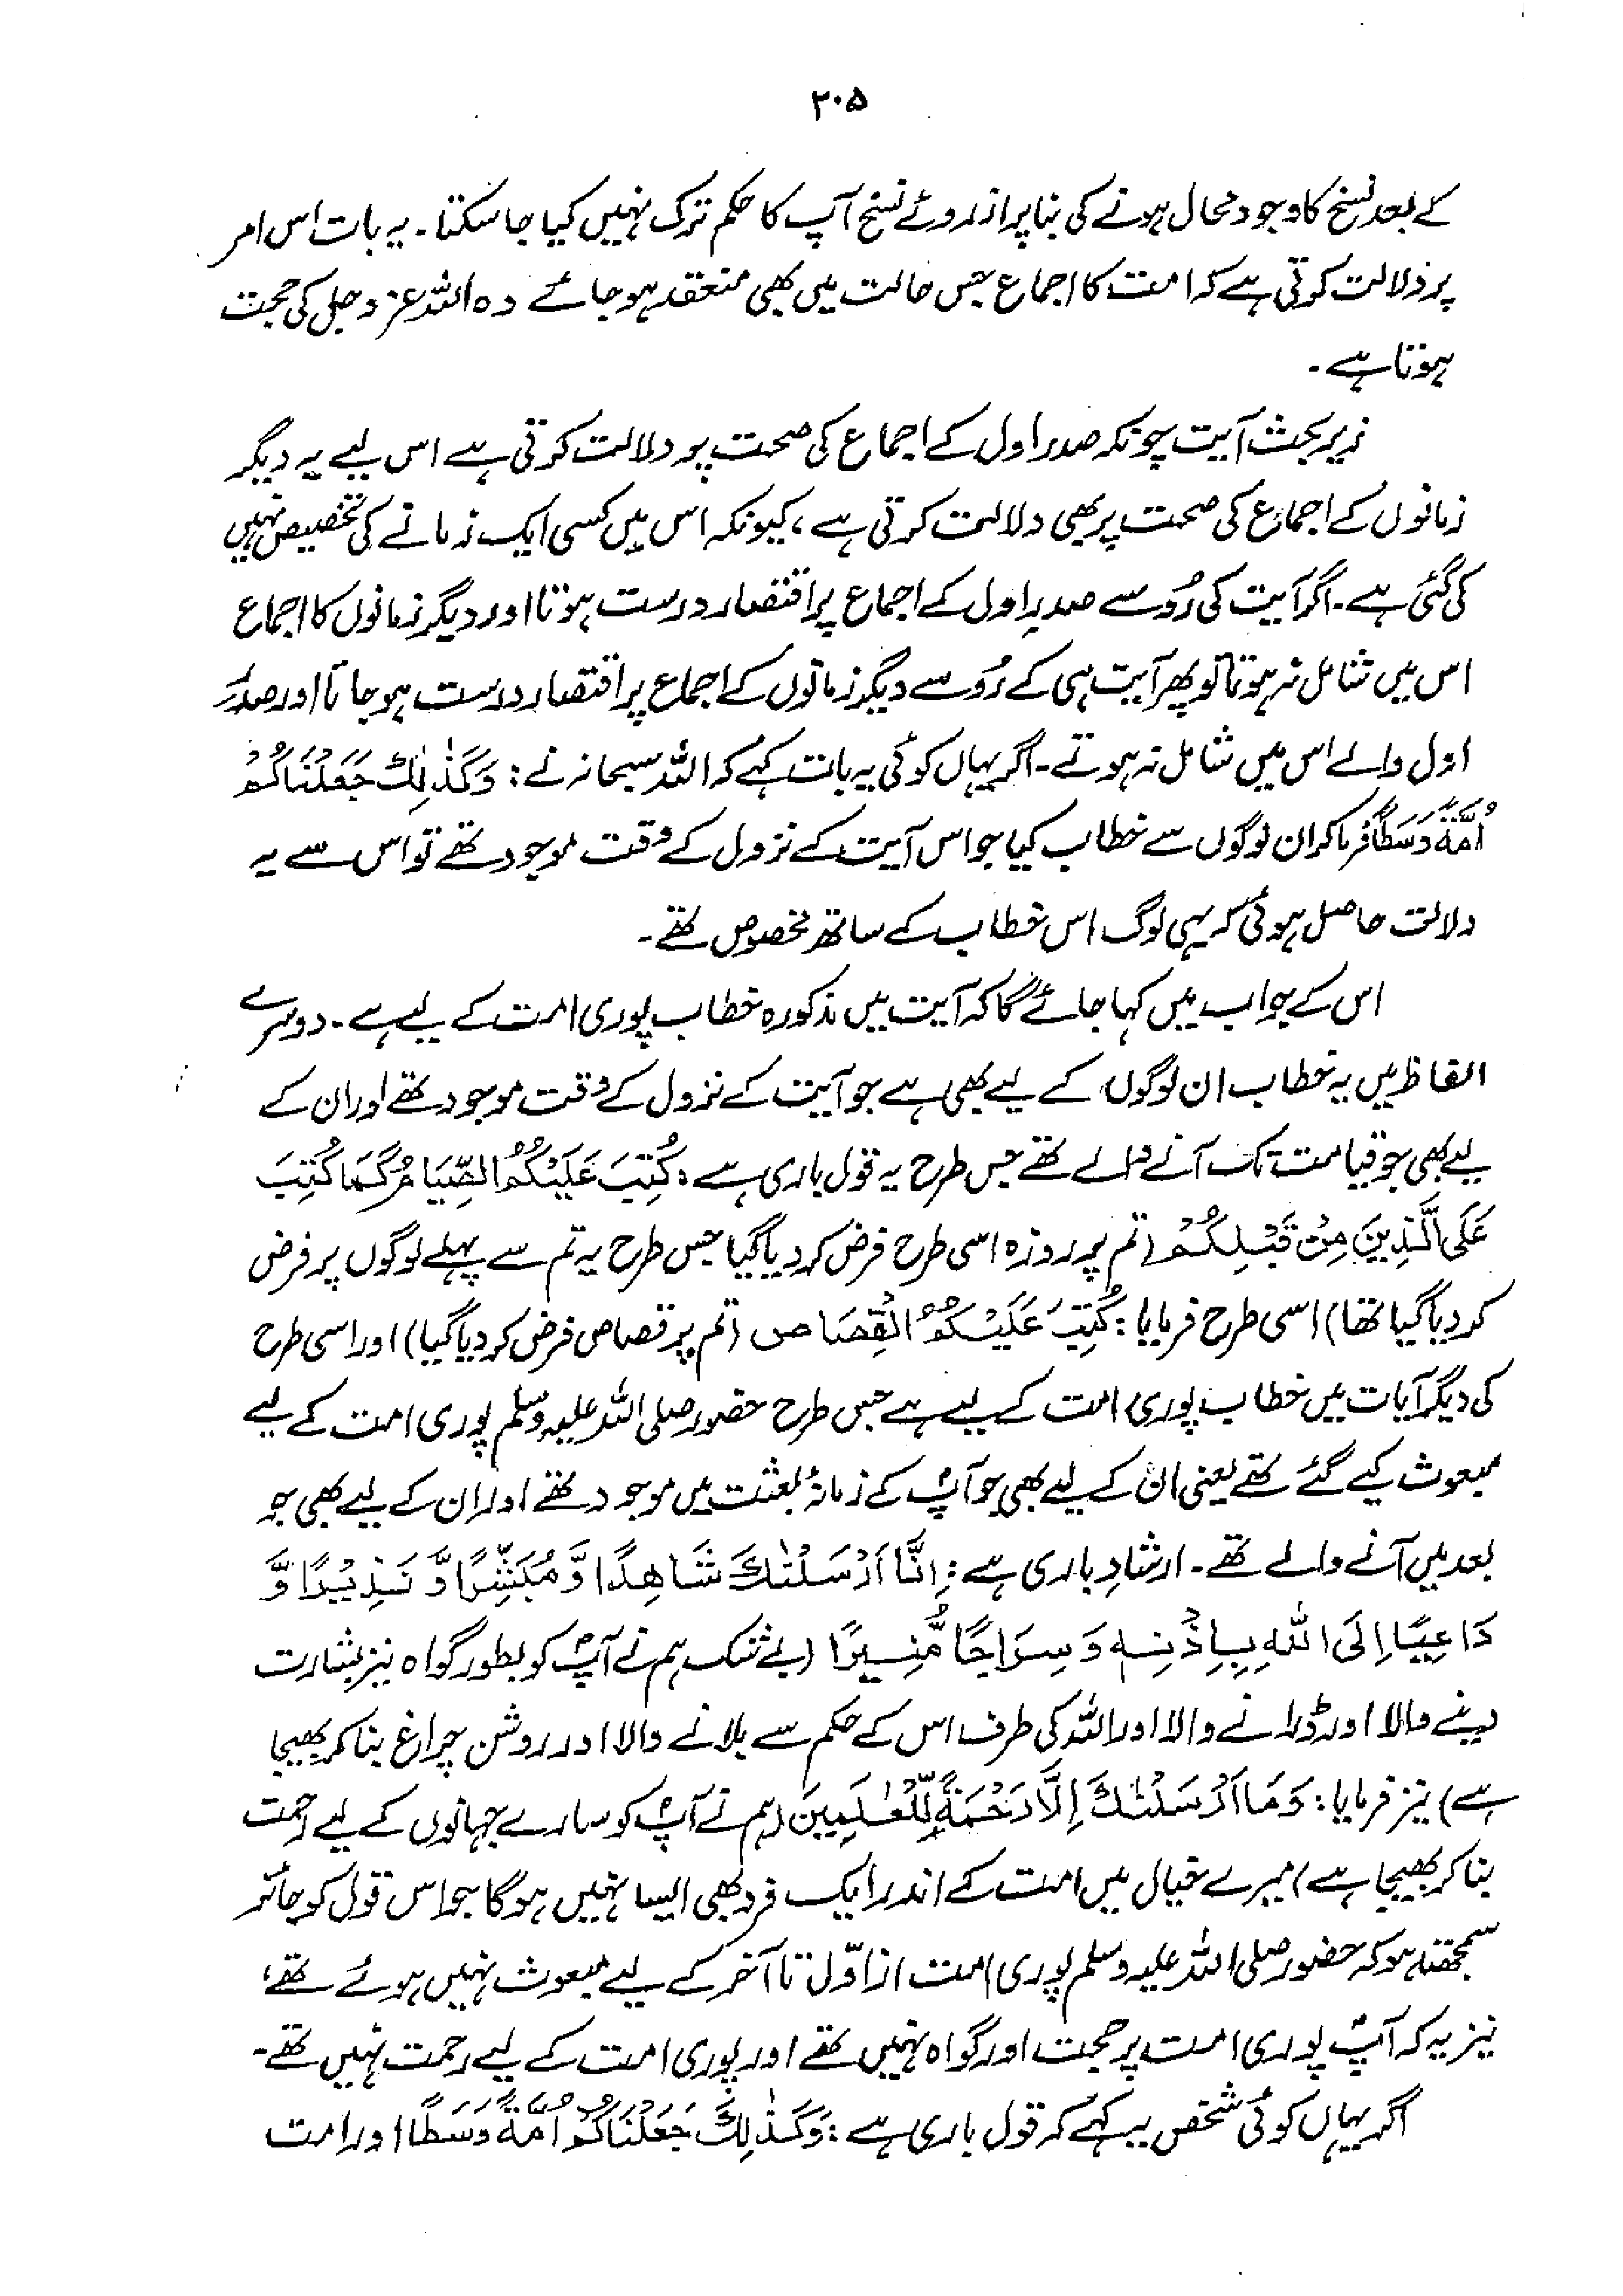 ۲۰۵
کے بعد نسخ کا وجود محال ہونے کی بنا پر ازروئے نسخ آپ کا حکم ترک نہیں کیا جا سکتا۔ یہ بات اس امر
پر دلالت کرتی ہے کہ امت کا اجماع جس حالت میں بھی منعقد ہو جائے وہ اللہ عزوجل کی حجت
ہوتا ہے۔
زیر بحث آیت چونکہ صدر اول کے اجماع کی صحت پر دلالت کرتی ہے اس لیے یہ دیگر
زمانوں کے اجماع کی صحت پر بھی دلالت کرتی ہے، کیونکہ اس میں کسی ایک زمانے کی تخصیص نہیں
کی گئی ہے۔ اگر آیت کی رُو سے صدرِ اول کے اجماع پر اقتصار درست ہوتا اور دیگر زمانوں کا اجماع
اس میں شامل نہ ہوتا تو پھر آیت ہی کے رُو سے دیگر زمانوں کے اجماع پر اقتصار درست ہو جاتا اور صدر
اول والے اس میں شامل نہ ہوتے۔ اگر یہاں کوئی یہ بات کہے کہ اللہ سبحانہ نے: وَکَذٰلِکَ جَعَلْنَاکُمْ
اُمَّةً وَسَطًا فرما کر ان لوگوں سے خطاب کیا جو اس آیت کے نزول کے وقت موجود تھے تو اس سے یہ
دلالت حاصل ہوئی کہ یہی لوگ اس خطاب کے ساتھ مخصوص تھے۔
اس کے جواب میں کہا جائے گا کہ آیت میں مذکورہ خطاب پوری امت کے لیے ہے۔ دوسرے
الفاظ میں یہ خطاب ان لوگوں کے لیے بھی ہے جو آیت کے نزول کے وقت موجود تھے اور ان کے
لیے بھی جو قیامت تک آنے والے تھے جس طرح یہ قول باری ہے: کُتِبَ عَلَیْکُمُ الصِّیَامُ کَمَا کُتِبَ
عَلَی الَّذِیْنَ مِنْ قَبْلِکُمْ (تم پر روزہ اسی طرح فرض کر دیا گیا جس طرح یہ تم سے پہلے لوگوں پر فرض
کر دیا گیا تھا) اسی طرح فرمایا: کُتِبَ عَلَیْکُمُ الْقِصَاص (تم پر قصاص فرض کر دیا گیا) اور اسی طرح
کی دیگر آیات میں خطاب پوری امت کے لیے ہے جس طرح حضور صلی اللہ علیہ وسلم پوری امت کے لیے
مبعوث کیے گئے تھے یعنی ان کے لیے بھی جو آپؐ کے زمانۂ بعثت میں موجود تھے اور ان کے لیے بھی جو
بعد میں آنے والے تھے۔ ارشادِ باری ہے: اِنَّا اَرْسَلْنٰکَ شَاهِدًا وَّ مُبَشِّرًا وَّ نَذِیْرًا وَّ
دَاعِیًا اِلَی اللّٰهِ بِاِذْنِهٖ وَ سِرَاجًا مُّنِیْرًا (بے شک ہم نے آپؐ کو بطور گواہ نیز بشارت
دینے والا اور ڈرانے والا اور اللہ کی طرف اس کے حکم سے بلانے والا اور روشن چراغ بنا کر بھیجا
ہے) نیز فرمایا: وَمَا اَرْسَلْنٰکَ اِلَّا رَحْمَةً لِّلْعٰلَمِیْنَ (ہم نے آپؐ کو سارے جہانوں کے لیے رحمت
بنا کر بھیجا ہے) میرے خیال میں امت کے اندر ایک فرد بھی ایسا نہیں ہوگا جو اس قول کو جائز
سمجھتا ہو کہ حضور صلی اللہ علیہ وسلم پوری امت از اوّل تا آخر کے لیے مبعوث نہیں ہوئے تھے،
نیز یہ کہ آپؐ پوری امت پر حجت اور گواہ نہیں تھے اور پوری امت کے لیے رحمت نہیں تھے۔
اگر یہاں کوئی شخص یہ کہے کہ قول باری ہے: وَکَذٰلِکَ جَعَلْنَاکُمْ اُمَّةً وَسَطًا اور امت